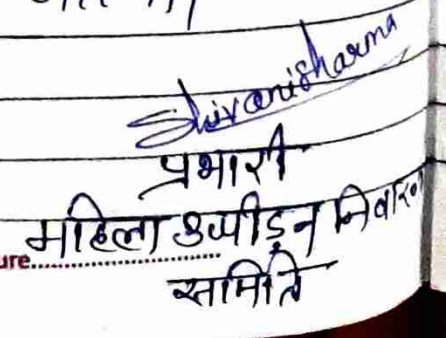 Shivanisharma
प्रभारी
महिला उत्पीड़न निवारन
ure
समिति